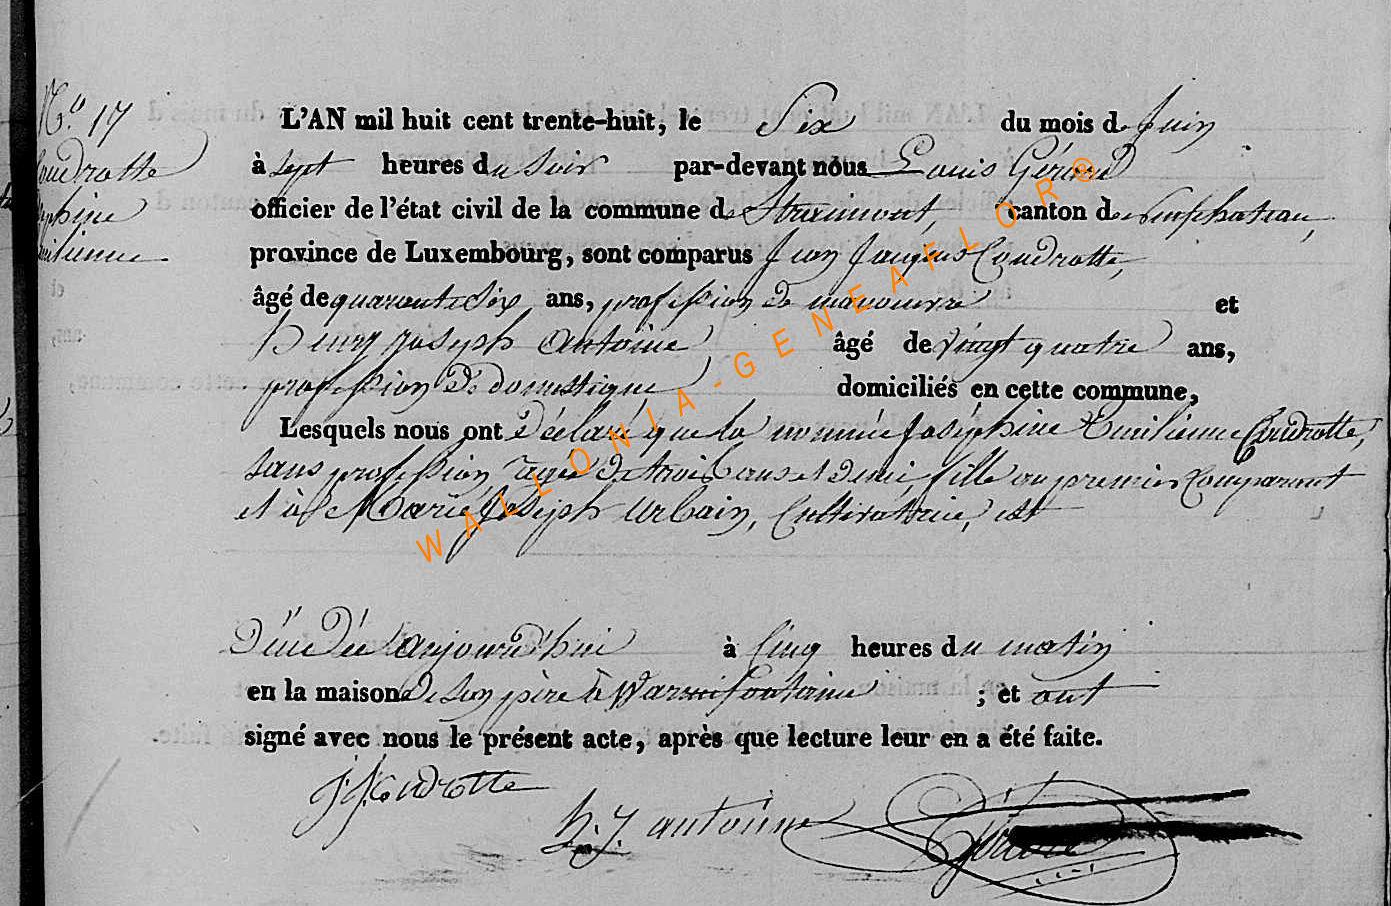 N.º 17
Coudrotte
phine
ilienne
L'AN mil huit cent trente-huit, le Six du mois de Juin
à sept heures du soir par-devant nous Louis Gérard
officier de l'état civil de la commune de Straimont, canton de Neufchateau,
province de Luxembourg, sont comparus Jean Jacques Coudrotte,
âgé de quarante Six ans, profession de manoeuvre et
Henry Joseph Antoine, âgé de vingt quatre ans,
profession de domestique domiciliés en cette commune,
Lesquels nous ont déclaré que la nommée Joséphine Emilienne Coudrotte,
sans profession agée de trois ans et demie fille au premier Comparant
et à Marie Joseph Urbain, Cultivatrice, est
Décédée aujourd'hui à Cinq heures du matin
en la maison de son père à Warmifontaine ; et ont
signé avec nous le présent acte, après que lecture leur en a été faite.
J J Coudrotte
h. J antoinne
Gérard
WALLONIA-GENEAFLOR®